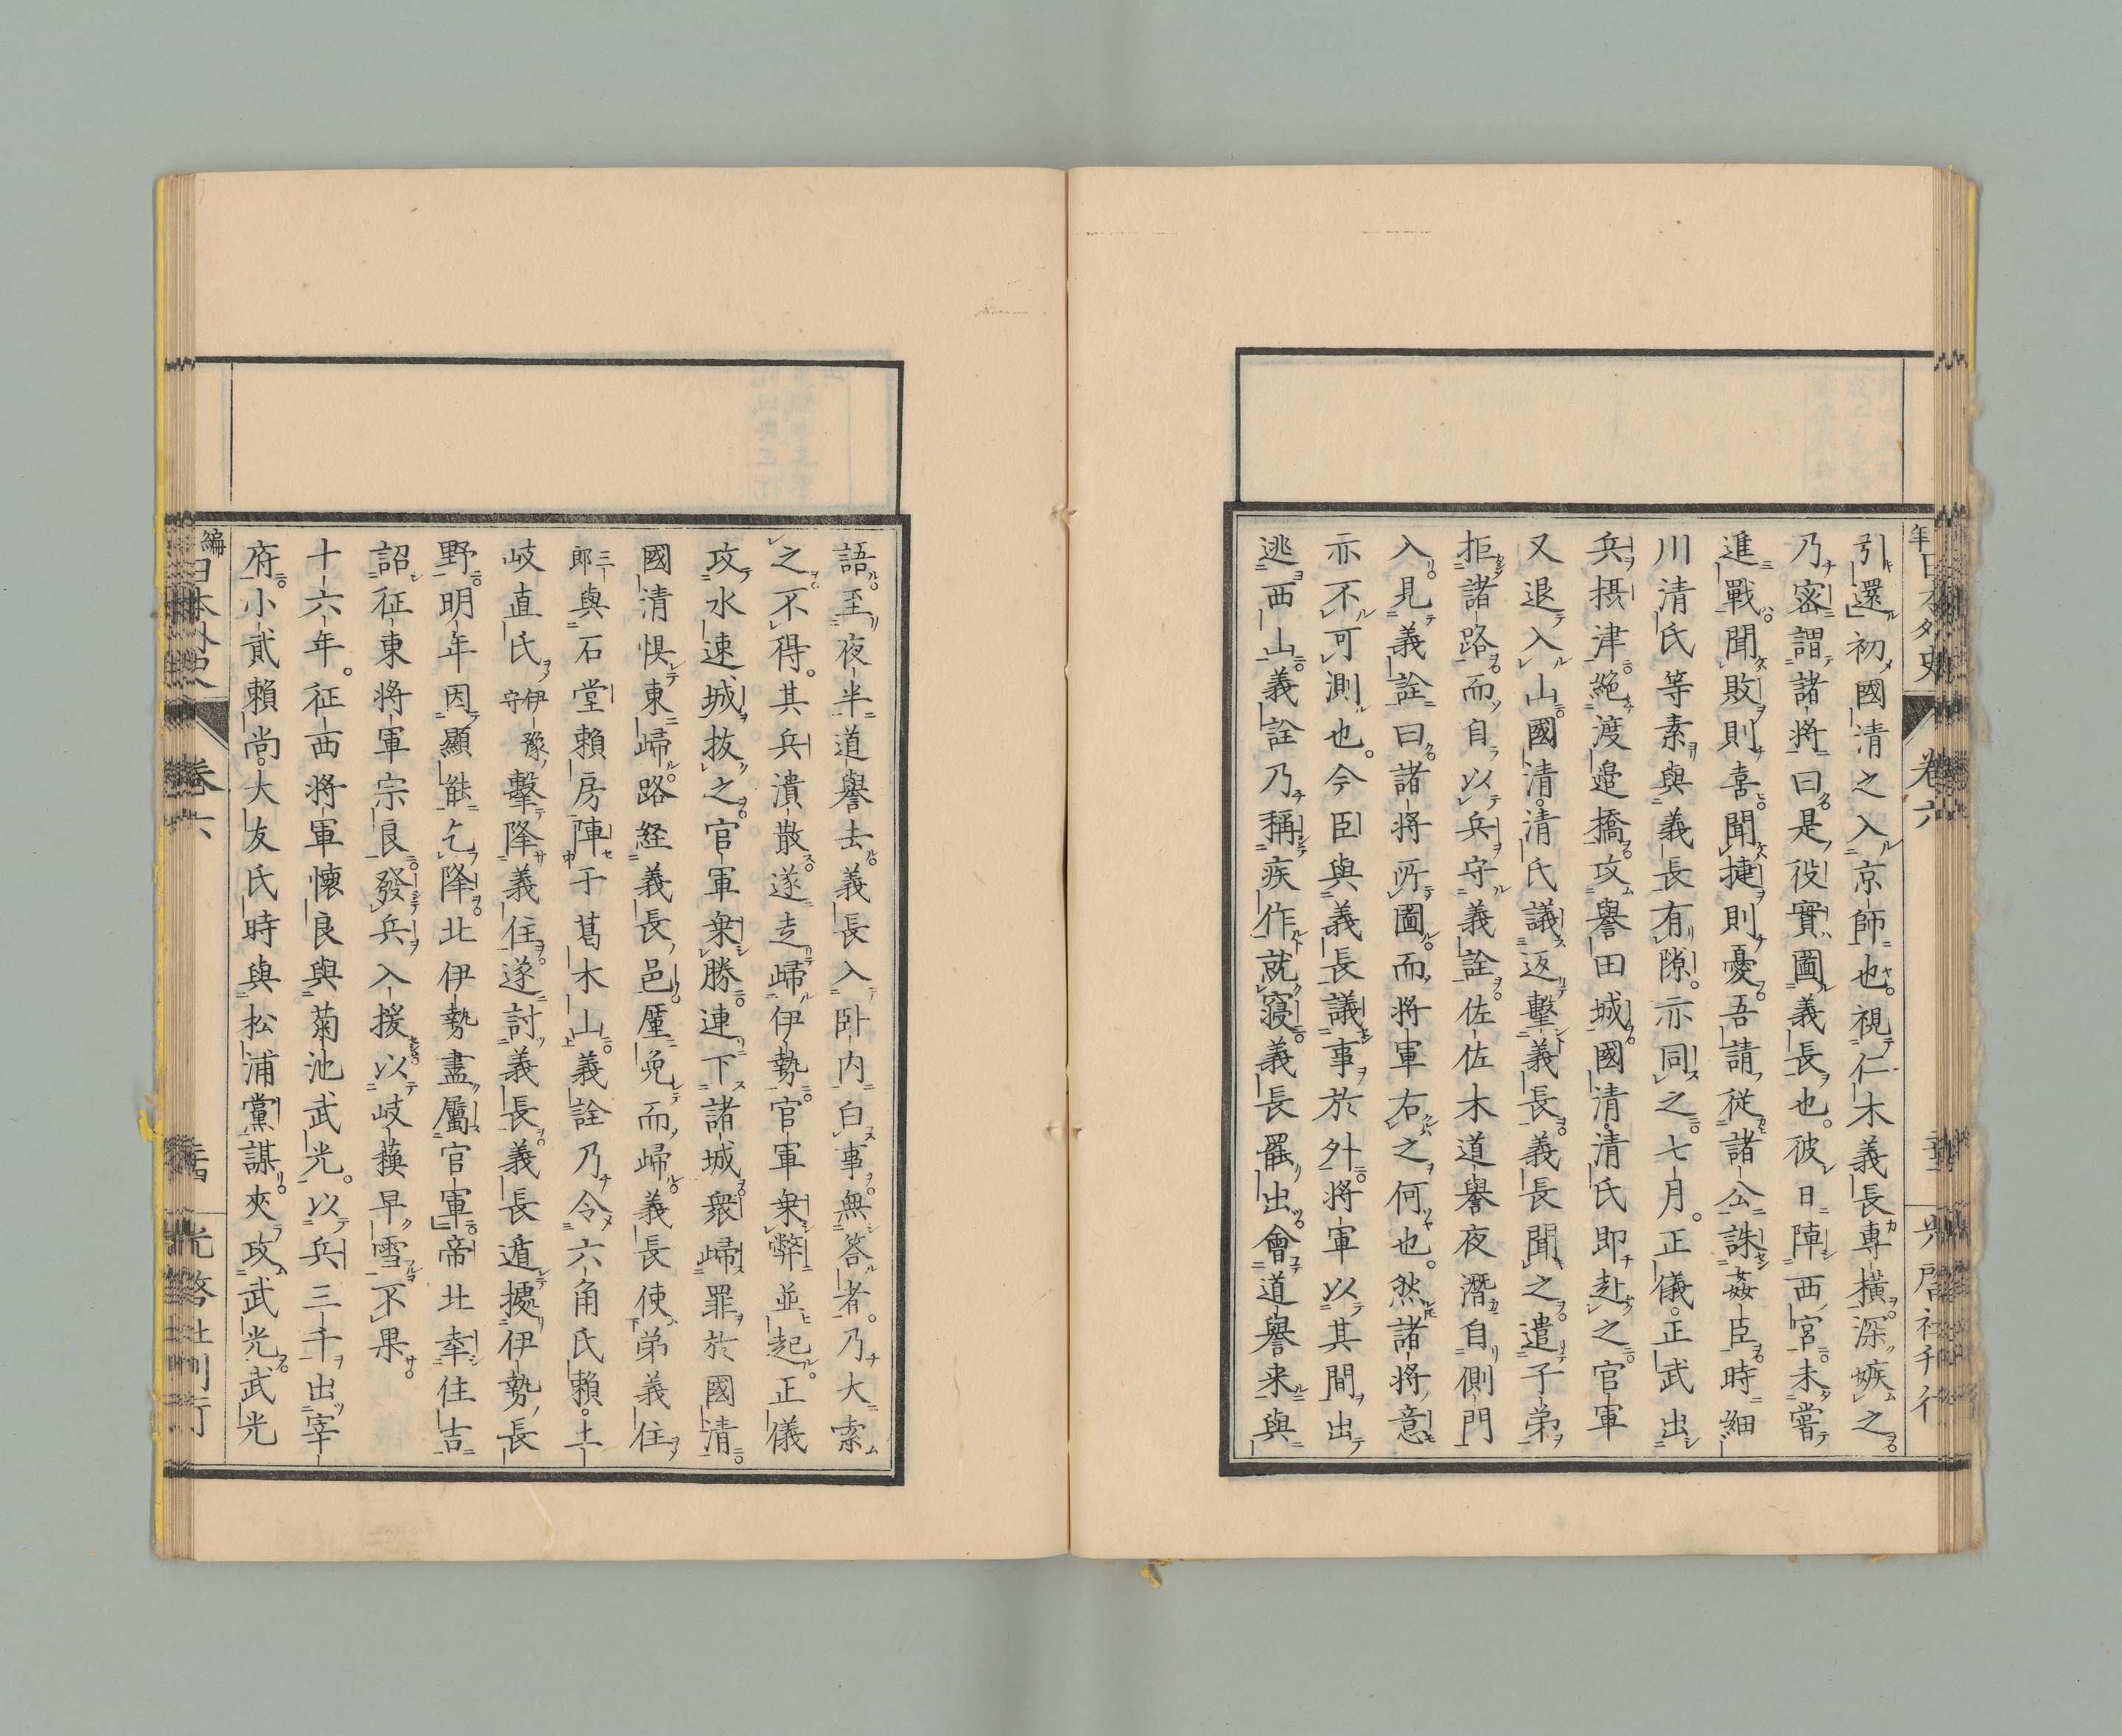 引還初國清之入京師也視仁木義長專横深嫉之
乃密謂諸將曰是役實圖義長也彼日陣西宮未嘗
進戰聞敗則喜聞捷則憂吾請從諸公誅姦臣時細
川清氏等素與義長有隙亦同之七月正儀正武出
兵摂津絶渡邉橋攻譽田城國清清氏即赴之官軍
又退入山國清清氏議返擊義長義長聞之遣子弟
拒諸路而自以兵守義詮佐佐木道譽夜潛自側門
入見義詮曰諸将所圖而将軍右之何也然諸将意
亦不可測也今臣與義長議事於外将軍以其間出
逃西山義詮乃稱疾作就寝義長罷出會道譽来與
語至夜半道譽去義長入卧内白事無答者乃大索
之不得其兵潰散遂走歸伊勢官軍乗弊並起正儀
攻水速城抜之官軍乗勝連下諸城衆歸罪於國清
國清惧東歸路経義長邑厪免而歸義長使弟義住
三郎與石堂頼房陣于葛木山義詮乃令六角氏頼土
岐直氏伊豫守擊降義住遂討義長義長遁據伊勢長
野明年因顯能乞降北伊勢盡屬官軍帝北幸住吉
詔征東将軍宗良發兵入援以岐蘓早雪不果
十六年征西将軍懐良與菊池武光以兵三千出宰
府小貳頼尚大友氏時與松浦黨謀夾攻武光武光
編
卷六